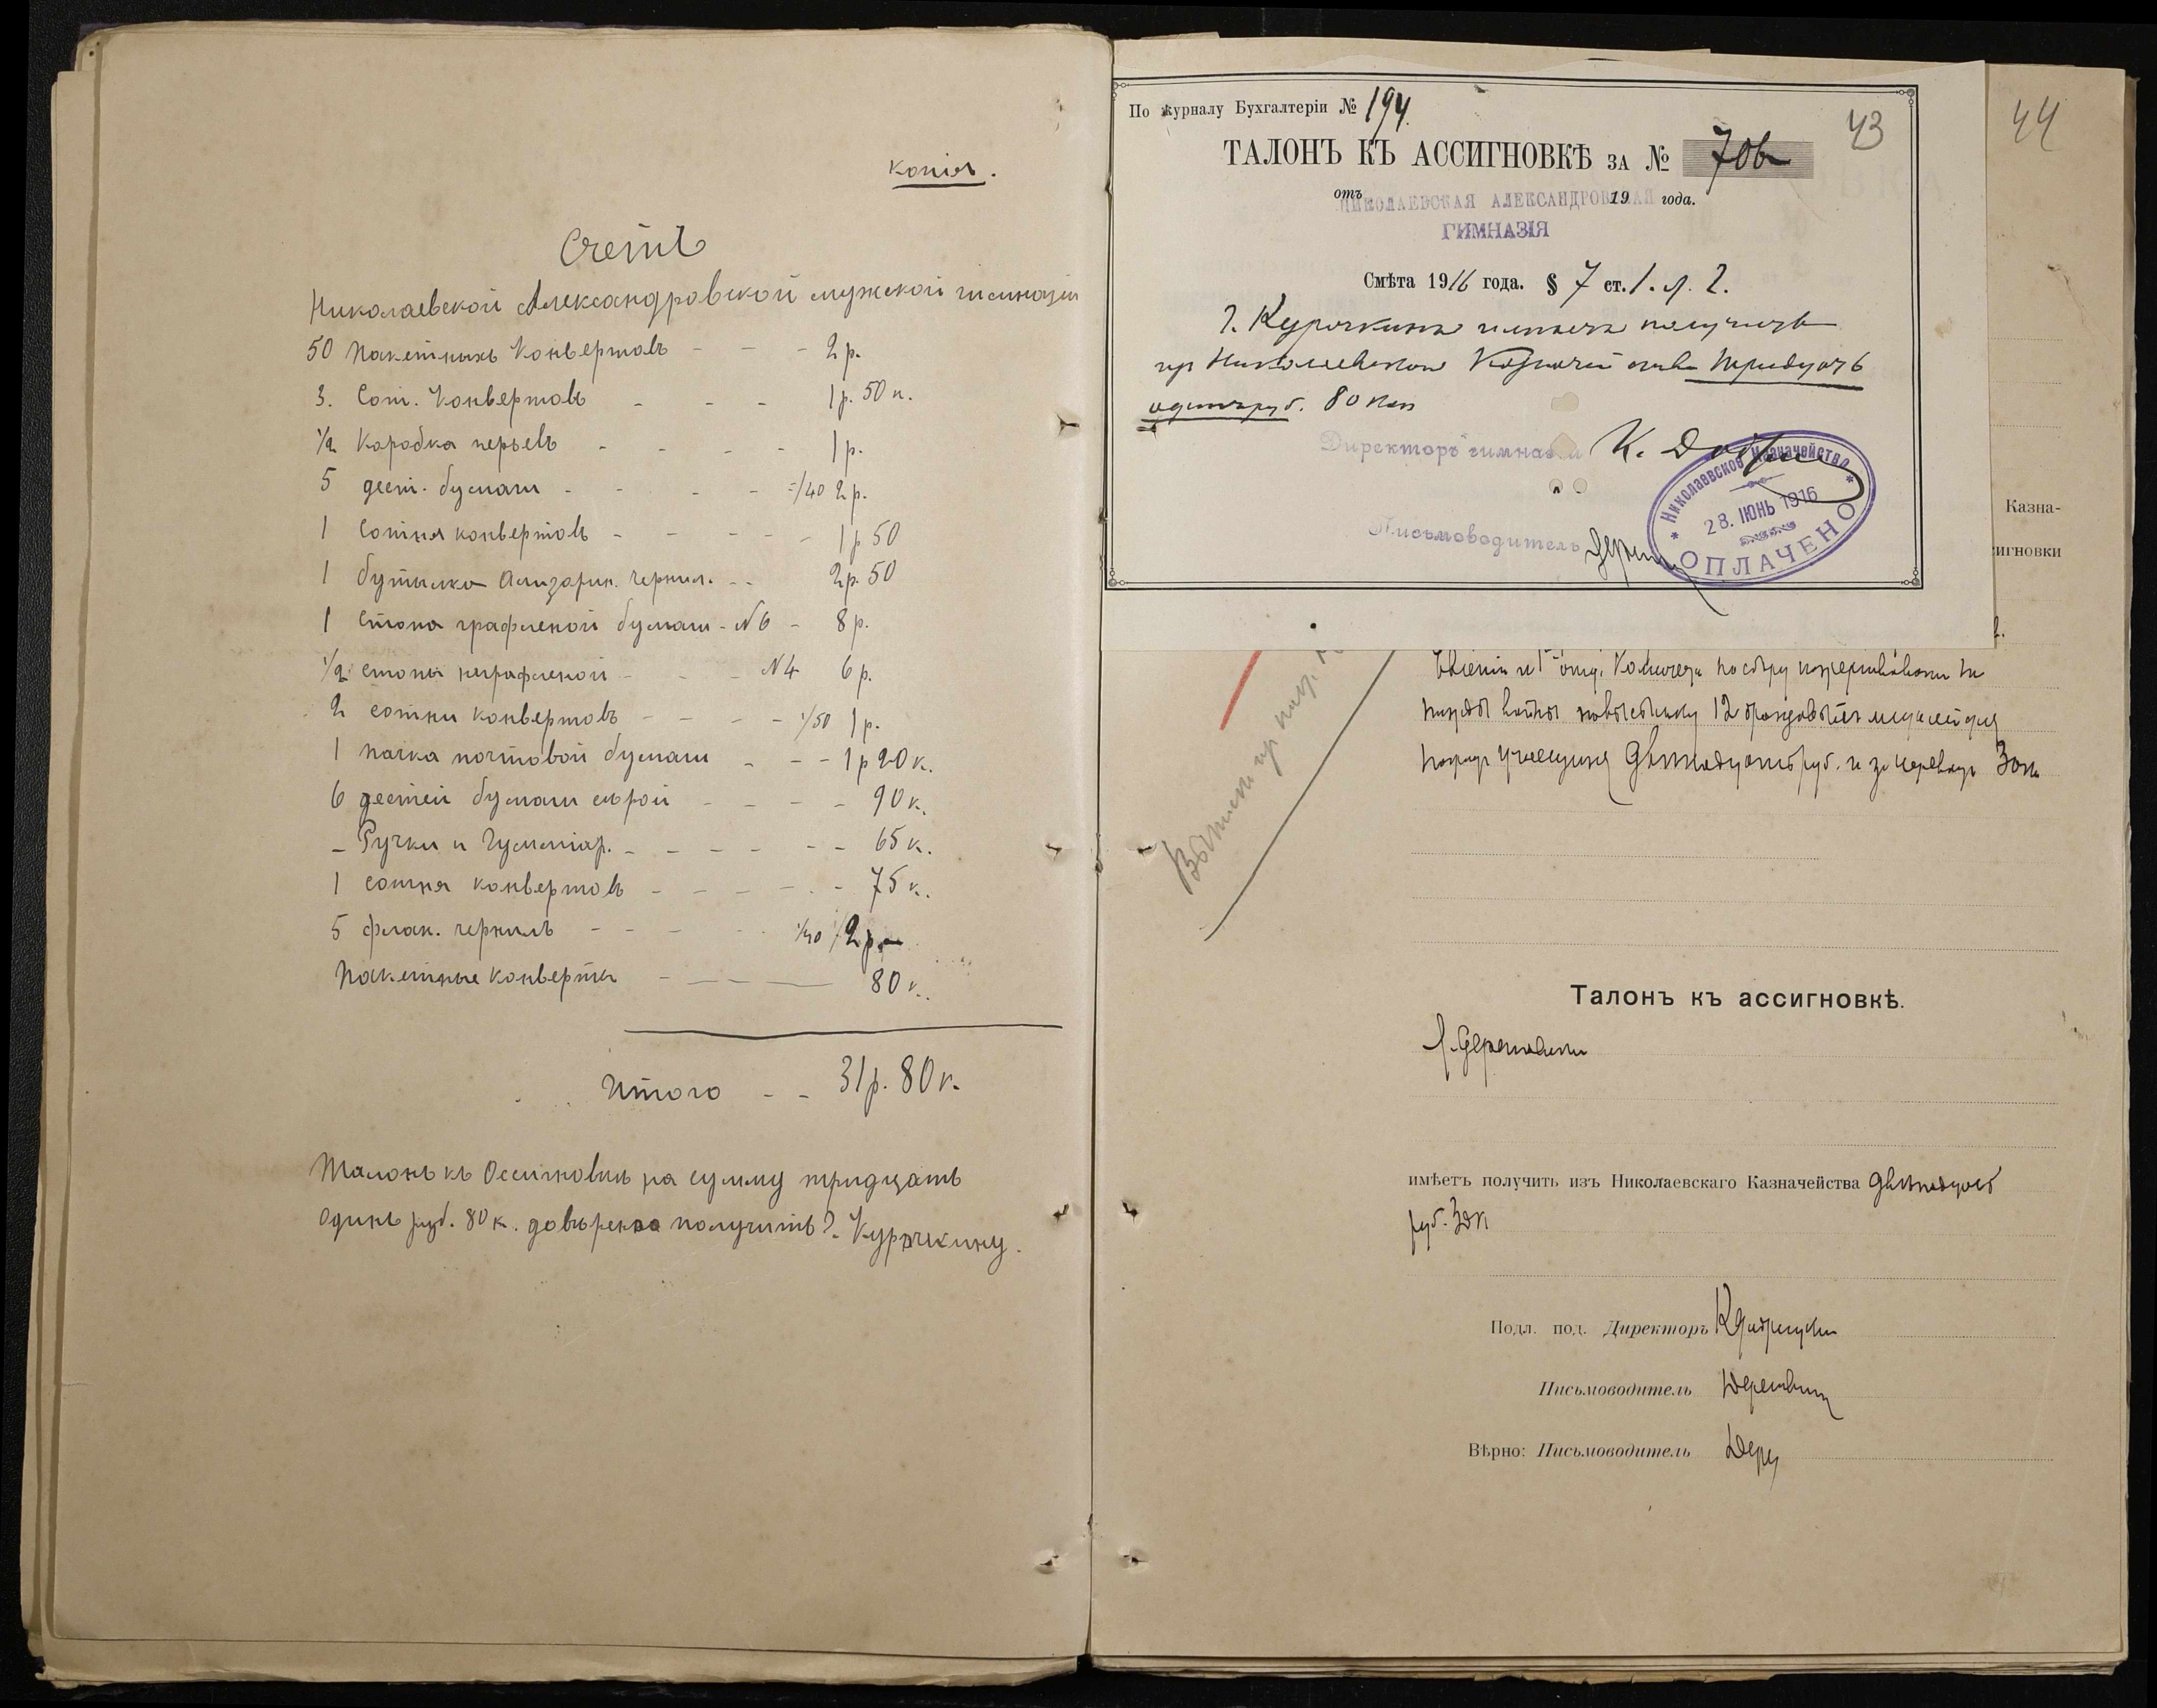 копія.
Счетъ
Николаевской Александровской мужской гимназіи
50 пакетныхъ конвертовъ - - - 2 р.
3. Сот. конвертовъ - - - 1 р. 50 к.
1/2 Коробка перьевъ - - - - 1 р.
5 дест. бумаги - - - - /40 2 р.
1 Сотня конвертовъ - - - - - 1 р 50
1 бутылка Ализарин. чернил. - - 2 р. 50
1 стопа графленой бумаги - N 6 - 8 р.
1/2 стопы неграфленой - - - N 4 6 р.
2 сотни конвертовъ - - - - /50 1 р.
1 пачка почтовой бумаги - - - 1 р 20 к.
6 дестей бумаги сѣрой - - - - 90 к.
- Ручки и Гумміар. - - - - - - - 65 к.
1 сотня конвертовъ - - - - - - 75 к.
5 флак. чернилъ - - - - /40 / 2 р.
Пакетные конверты - - - - 80 к.
Итого - - 31 р. 80 к.
Талонъ къ Ассигновкѣ на сумму тридцать
одинъ руб. 80 к. довѣрено получить Г. Курочкину.
По журналу Бухгалтеріи № 194.
43
44
ТАЛОНЪ КЪ АССИГНОВКѢ ЗА № 706
отъ 19 года.
НИКОЛАЕВСКАЯ АЛЕКСАНДРОВСКАЯ
ГИМНАЗІЯ
Смѣта 1916 года. § 7 ст. 1. л. 2.
Г. Курочкинъ имѣетъ получить
из Николаевскаго Казначейства тридцать
одинъ руб. 80 коп
Директоръ гимназіи К.
Письмоводитель
* Николаевское Казначейство *
28. ІЮНЬ 1916
ОПЛАЧЕНО
Казна-
игновки
12
двѣнадцать руб. и за 30 к
Талонъ къ ассигновкѣ.
имѣетъ получить изъ Николаевскаго Казначейства двѣнадцать
руб. 30 к
Подл. под. Директоръ
Письмоводитель
Вѣрно: Письмоводитель